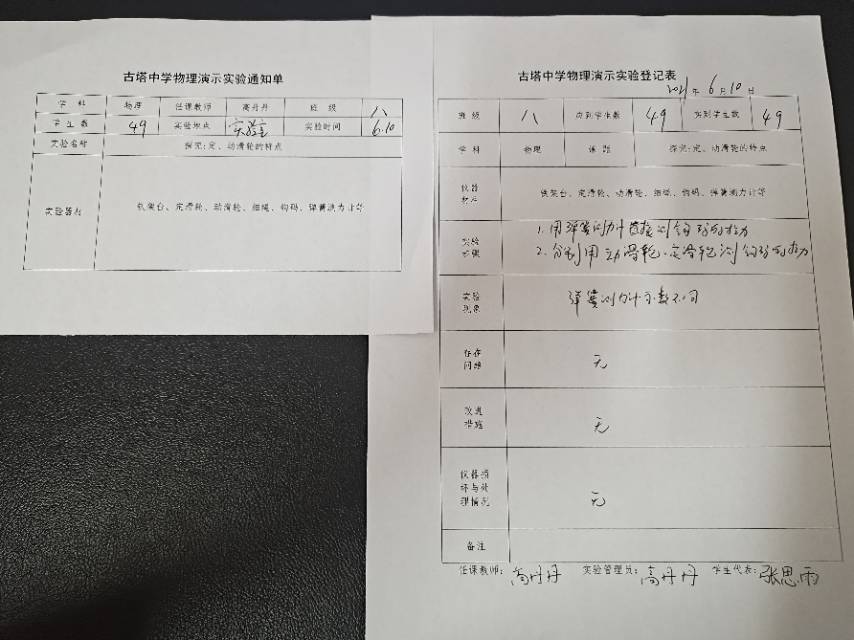 古塔中学物理演示实验通知单
学 科 物理 任课教师 高丹丹 班 级 八
学 生 数 49 实验地点 实验室 实验时间 6.10
实验名称 探究:定、动滑轮的特点
实验器材 铁架台、定滑轮、动滑轮、细绳、钩码、弹簧测力计等
古塔中学物理演示实验登记表
2021年 6月10日
班 级 八 应到学生数 49 实到学生数 49
学科 物理 课 题 探究:定、动滑轮的特点
仪器
材料
铁架台、定滑轮、动滑轮、细绳、钩码、弹簧测力计等
实验
步骤
1. 用弹簧测力计直接测钩码的拉力
2. 分别用动滑轮、定滑轮测钩码的拉力
实验
现象
弹簧测力计示数不同
存在
问题
无
改进
措施
无
仪器损
坏与处
理情况
无
备注
任课教师: 高丹丹 实验管理员: 高丹丹 学生代表: 张思雨